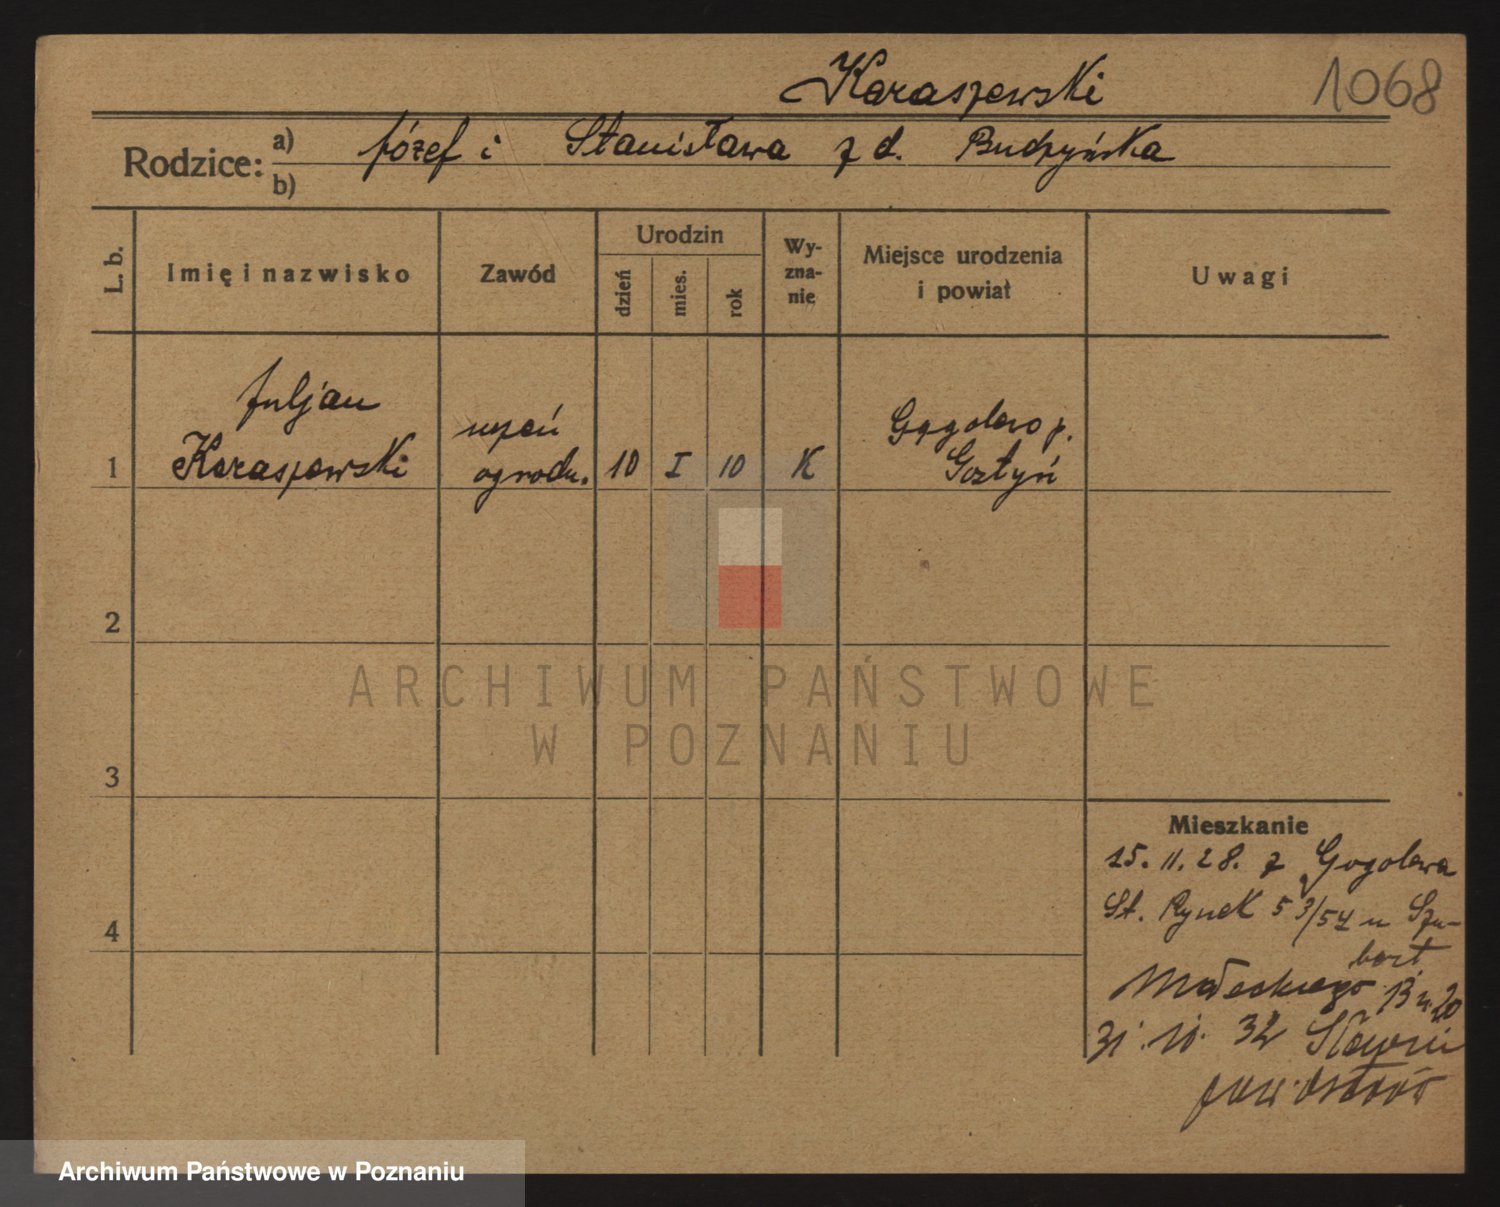 Karaszewski
1068
Rodzice:
a) Józef i Stanisława z d. Budzyńska
b)
L. b.
Imię i nazwisko
Zawód
Urodzin
dzień
mies.
rok
Wy-
zna-
nie
Miejsce urodzenia
i powiat
Uwagi
1
Juljan
Karaszewski
uczeń
ogrodn.
10
I
10
K
Gogolewo p.
Gostyń
2
3
4
ARCHIWUM PAŃSTWOWE
W POZNANIU
Mieszkanie
15. 11. 28. z Gogolewa
St. Rynek 53/54 u Szu-
bert
Małeckiego 13 u. 20
31. 10. 32
pow.
Archiwum Państwowe w Poznaniu